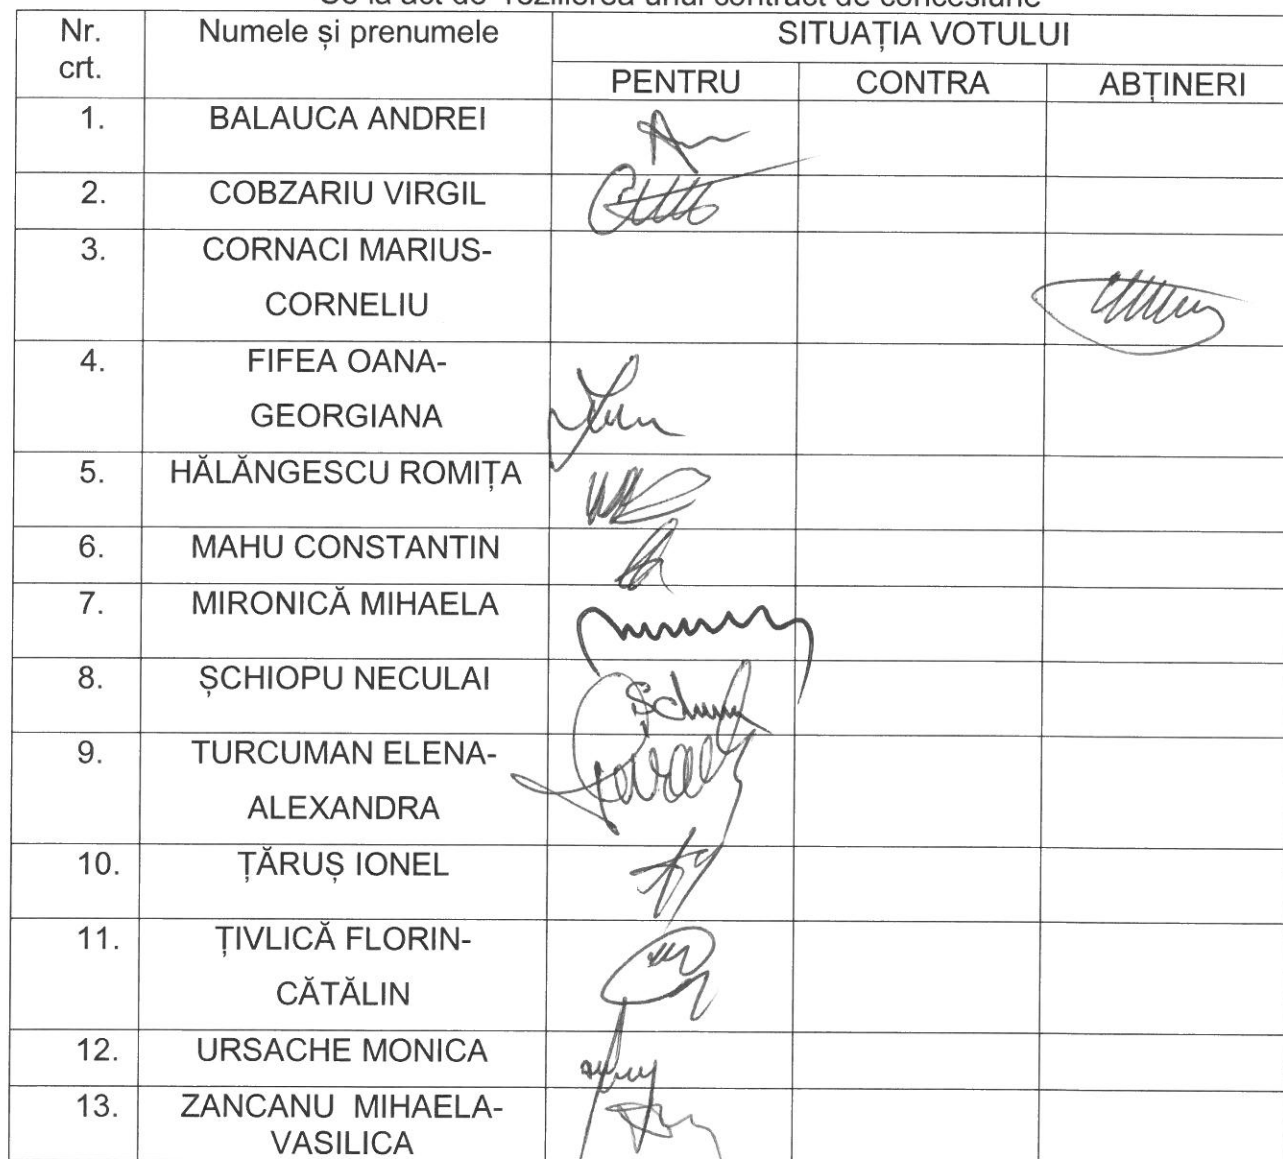 Se ia act de rezilierea unui contract de concesiune
Nr. crt. Numele și prenumele SITUAȚIA VOTULUI
PENTRU CONTRA ABȚINERI
1. BALAUCA ANDREI
2. COBZARIU VIRGIL
3. CORNACI MARIUS-
CORNELIU
4. FIFEA OANA-
GEORGIANA
5. HĂLĂNGESCU ROMIȚA
6. MAHU CONSTANTIN
7. MIRONICĂ MIHAELA
8. ȘCHIOPU NECULAI
9. TURCUMAN ELENA-
ALEXANDRA
10. ȚĂRUȘ IONEL
11. ȚIVLICĂ FLORIN-
CĂTĂLIN
12. URSACHE MONICA
13. ZANCANU MIHAELA-
VASILICA